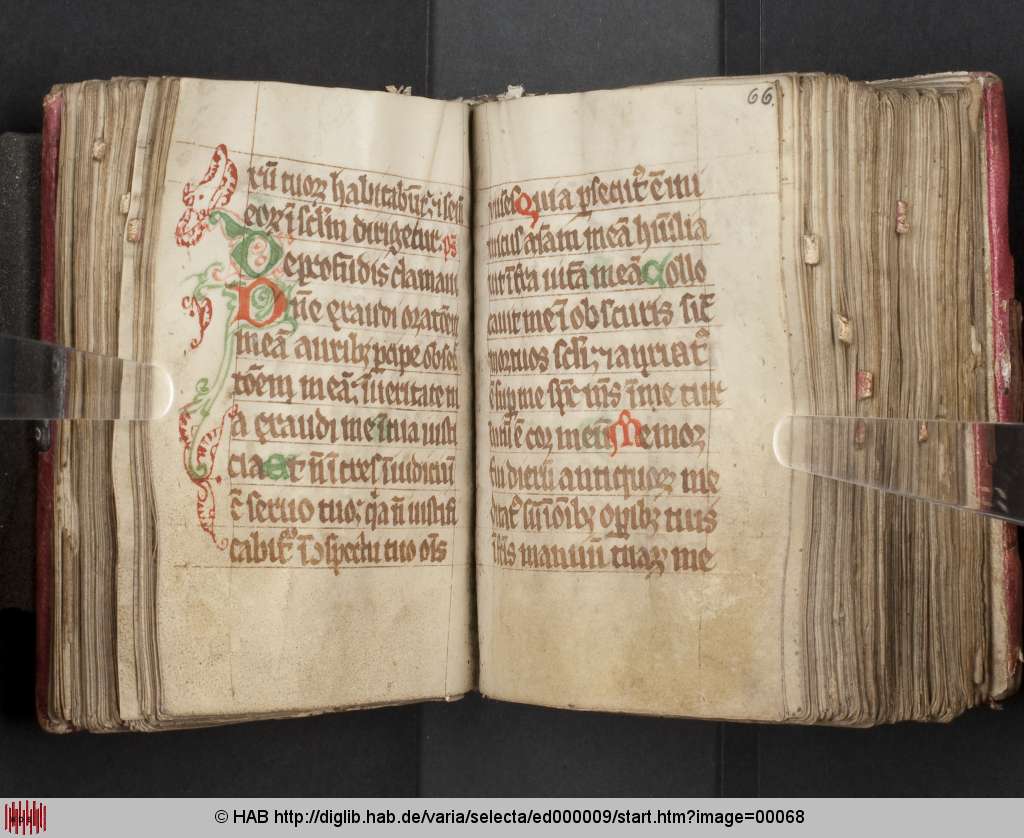 rū tuoꝝ habitabūt ⁊ ı seml̄
eoꝝ ī sclm̄ dirigetur ps̄
De profūdis clamaui
Dn̄e exaudi oratōem
meā auribꝫ pcipe obsec̄
tōem meā ī ueritate tu
a exaudi me in tua iusti
cia Et nō ītres ī iudiciū
cū seruo tuo qꝛ nō iustifi
cabit̉ ī ɔspectu tuo om̄s
66.
uiues Quia psecut̉ ē ini
micus aīam meā humilia
uit ī tr̄a uitā meā Collo
cauit me ī obscuris sic̄
mortuos scli ⁊ anxiat̉
ē sup me sp̄c me̅s ī me tur
batū ē cor meū Memor
fui dierū antiquoꝝ me
ditat̉ sū ī om̄ibꝫ oꝑibꝫ tuis
ī fc̄is manuū tuaꝝ me
© HAB http://diglib.hab.de/varia/selecta/ed000009/start.htm?image=00068
HAB